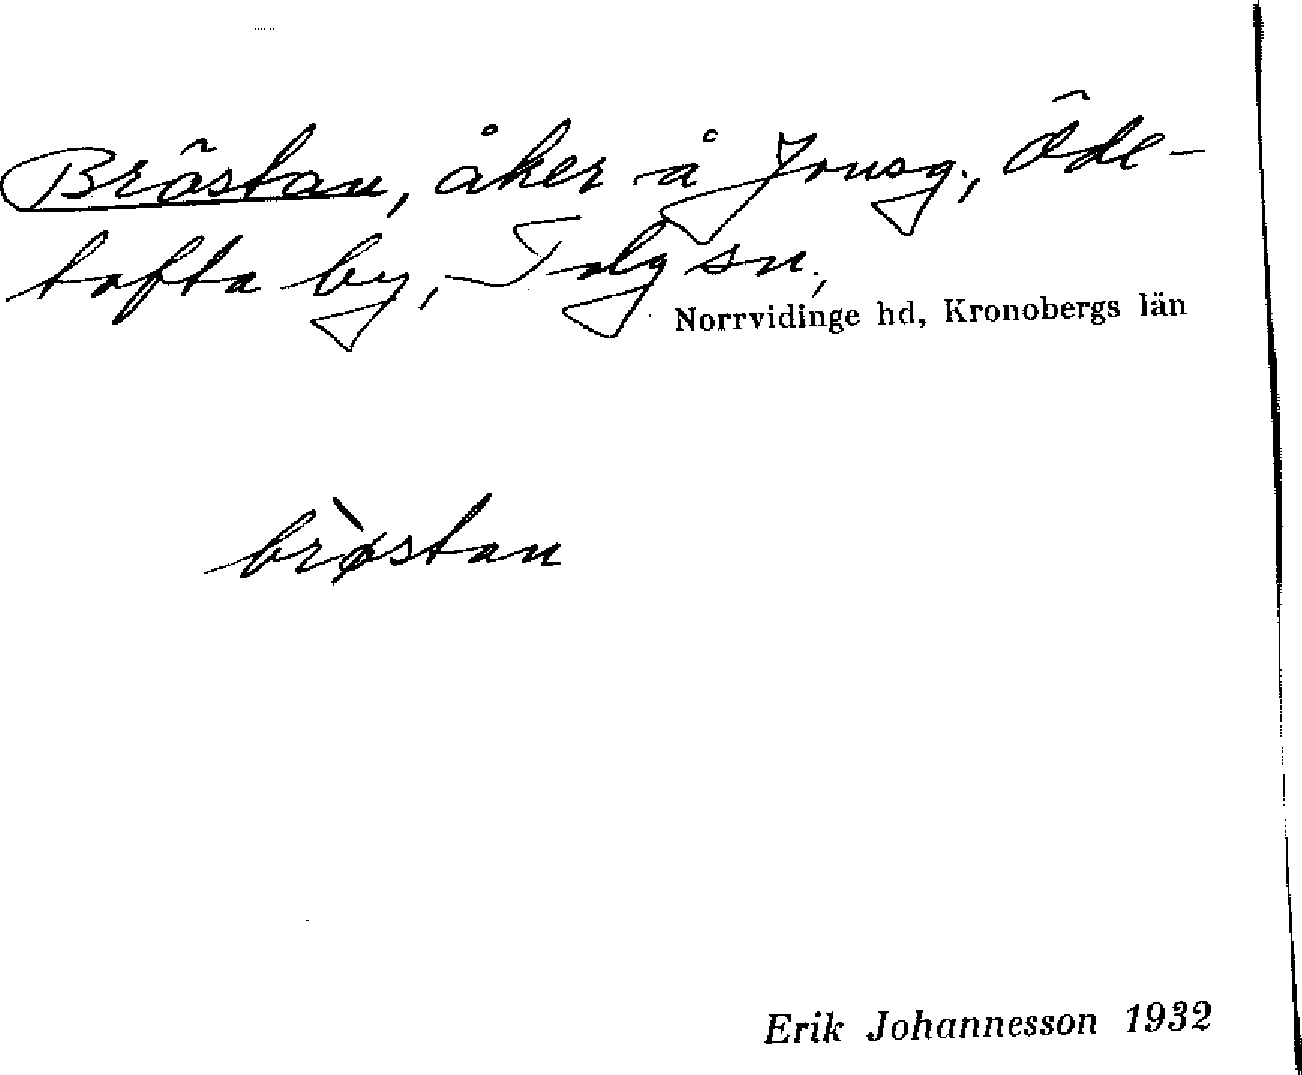 Bröstan, åker å Jonsg., Öde-
tofta by, Tolg sn,
Norrvidinge hd, Kronobergs län
brø̀stan
Erik Johannesson 1932